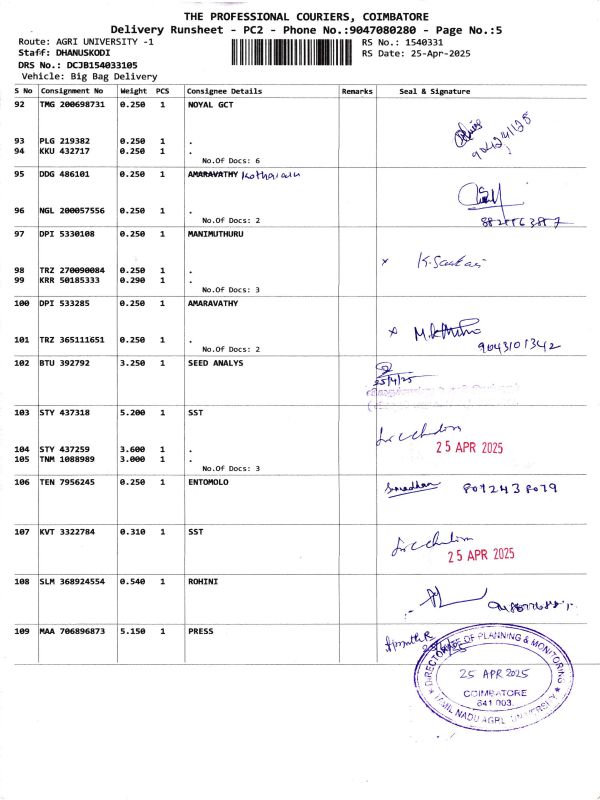 THE PROFESSIONAL COURIERS, COIMBATORE
Delivery Runsheet - PC2 - Phone No.:9047080280 - Page No.:5
Route: AGRI UNIVERSITY -1 RS No.: 1540331
Staff: DHANUSKODI RS Date: 25-Apr-2025
DRS No.: DCJB154033105
Vehicle: Big Bag Delivery
S No Consignment No Weight PCS Consignee Details Remarks Seal & Signature
92 TMG 200698731 0.250 1 NOYAL GCT
93 PLG 219382 0.250 1 .
94 KKU 432717 0.250 1 .
No.Of Docs: 6
95 DDG 486101 0.250 1 AMARAVATHY
96 NGL 200057556 0.250 1 .
No.Of Docs: 2
97 DPI 5330108 0.250 1 MANIMUTHURU
x K.Sankar
98 TRZ 270090084 0.250 1 .
99 KRR 50185333 0.290 1 .
No.Of Docs: 3
100 DPI 533285 0.250 1 AMARAVATHY
x
101 TRZ 365111651 0.250 1 .
9043101342
No.Of Docs: 2
102 BTU 392792 3.250 1 SEED ANALYS
25/4/25
103 STY 437318 5.200 1 SST
25 APR 2025
104 STY 437259 3.600 1 .
105 TNM 1088989 3.000 1 .
No.Of Docs: 3
106 TEN 7956245 0.250 1 ENTOMOLO
8072438079
107 KVT 3322784 0.310 1 SST
25 APR 2025
108 SLM 368924554 0.540 1 ROHINI
109 MAA 706896873 5.150 1 PRESS
DIRECTORATE OF PLANNING & MONITORING
25 APR 2025
COIMBATORE
641 003.
TAMIL NADU AGRL. UNIVERSITY